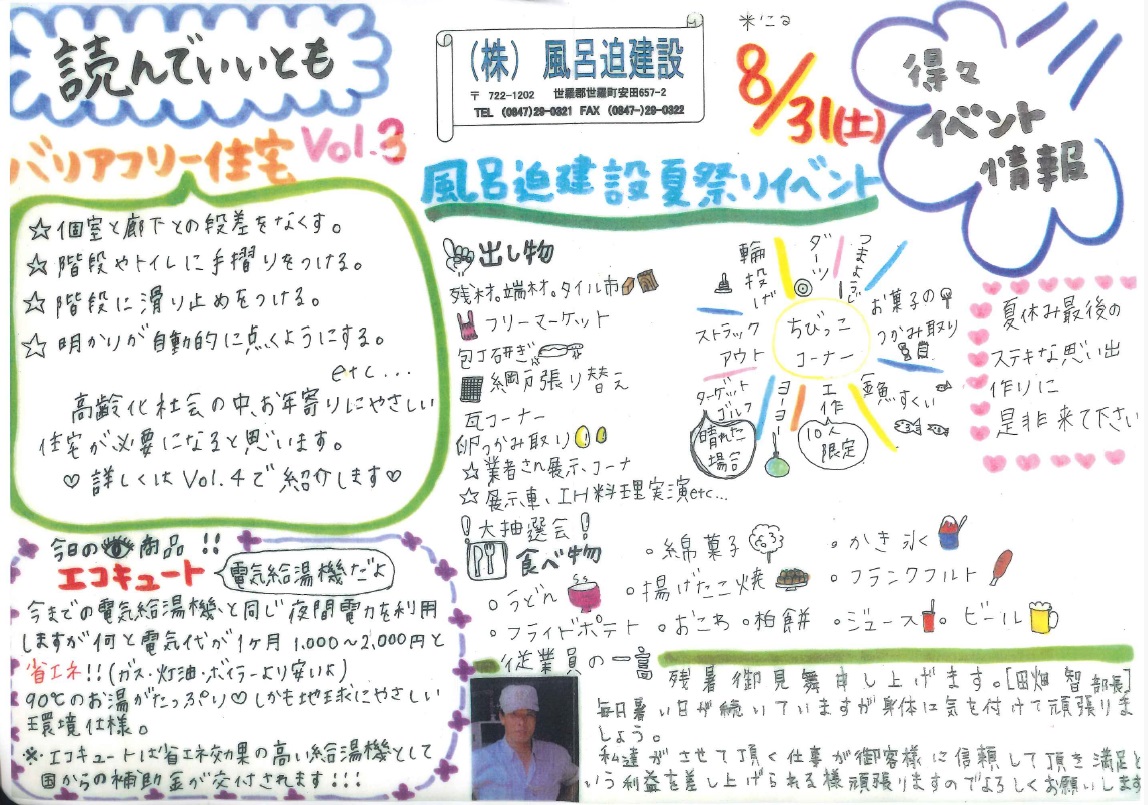 読んでいいとも
バリアフリー住宅 Vol.3
☆個室と廊下との段差をなくす。
☆階段やトイレに手摺りをつける。
☆階段に滑り止めをつける。
☆明かりが自動的に点くようにする。
etc...
高齢化社会の中、お年寄りにやさしい
住宅が必要になると思います。
♡詳しくは Vol.4で紹介します♡
今日の 商品!!
エコキュート
電気給湯機だよ
今までの電気給湯機と同じ夜間電力を利用
しますが何と電気代が1ヶ月1,000〜2,000円と
省エネ!!(ガス・灯油・ボイラーより安いよ)
90℃のお湯がたっぷり♡しかも地球にやさしい
環境仕様。
※エコキュートは省エネ効果の高い給湯機として
国からの補助金が交付されます!!!
(株) 風呂迫建設
〒 722-1202 世羅郡世羅町安田657-2
TEL (0847)29-0321 FAX (0847-)29-0322
8/31(土)
得々
イベント
情報
風呂迫建設夏祭りイベント
出し物
残材。端材。タイル市
フリーマーケット
包丁研ぎ
網戸張り替え
瓦コーナー
卵つかみ取り
☆業者され展示、コーナ
☆展示車、IH料理実演etc...
!大抽選会!
ちびっこ
コーナー
輪投げ
ダーツ
つまようじ
お菓子の
つかみ取り
金魚すくい
工作
10人
限定
ヨーヨー
ターゲット
ゴルフ
晴れた
場合
ストラック
アウト
夏休み最後の
ステキな思い出
作りに
是非来て下さい
食べ物
◦綿菓子
◦かき氷
◦うどん
◦揚げたこ焼
◦フランクフルト
◦フライドポテト
◦おこわ
◦柏餅
◦ジュース
◦ビール
従業員の一言
残暑御見舞申し上げます。[田畑 智部長]
毎日暑い日が続いていますが身体に気を付けて頑張りま
しょう。
私達がさせて頂く仕事が御客様に信頼して頂き満足と
いう利益を差し上げられる様頑張りますのでよろしくお願いします